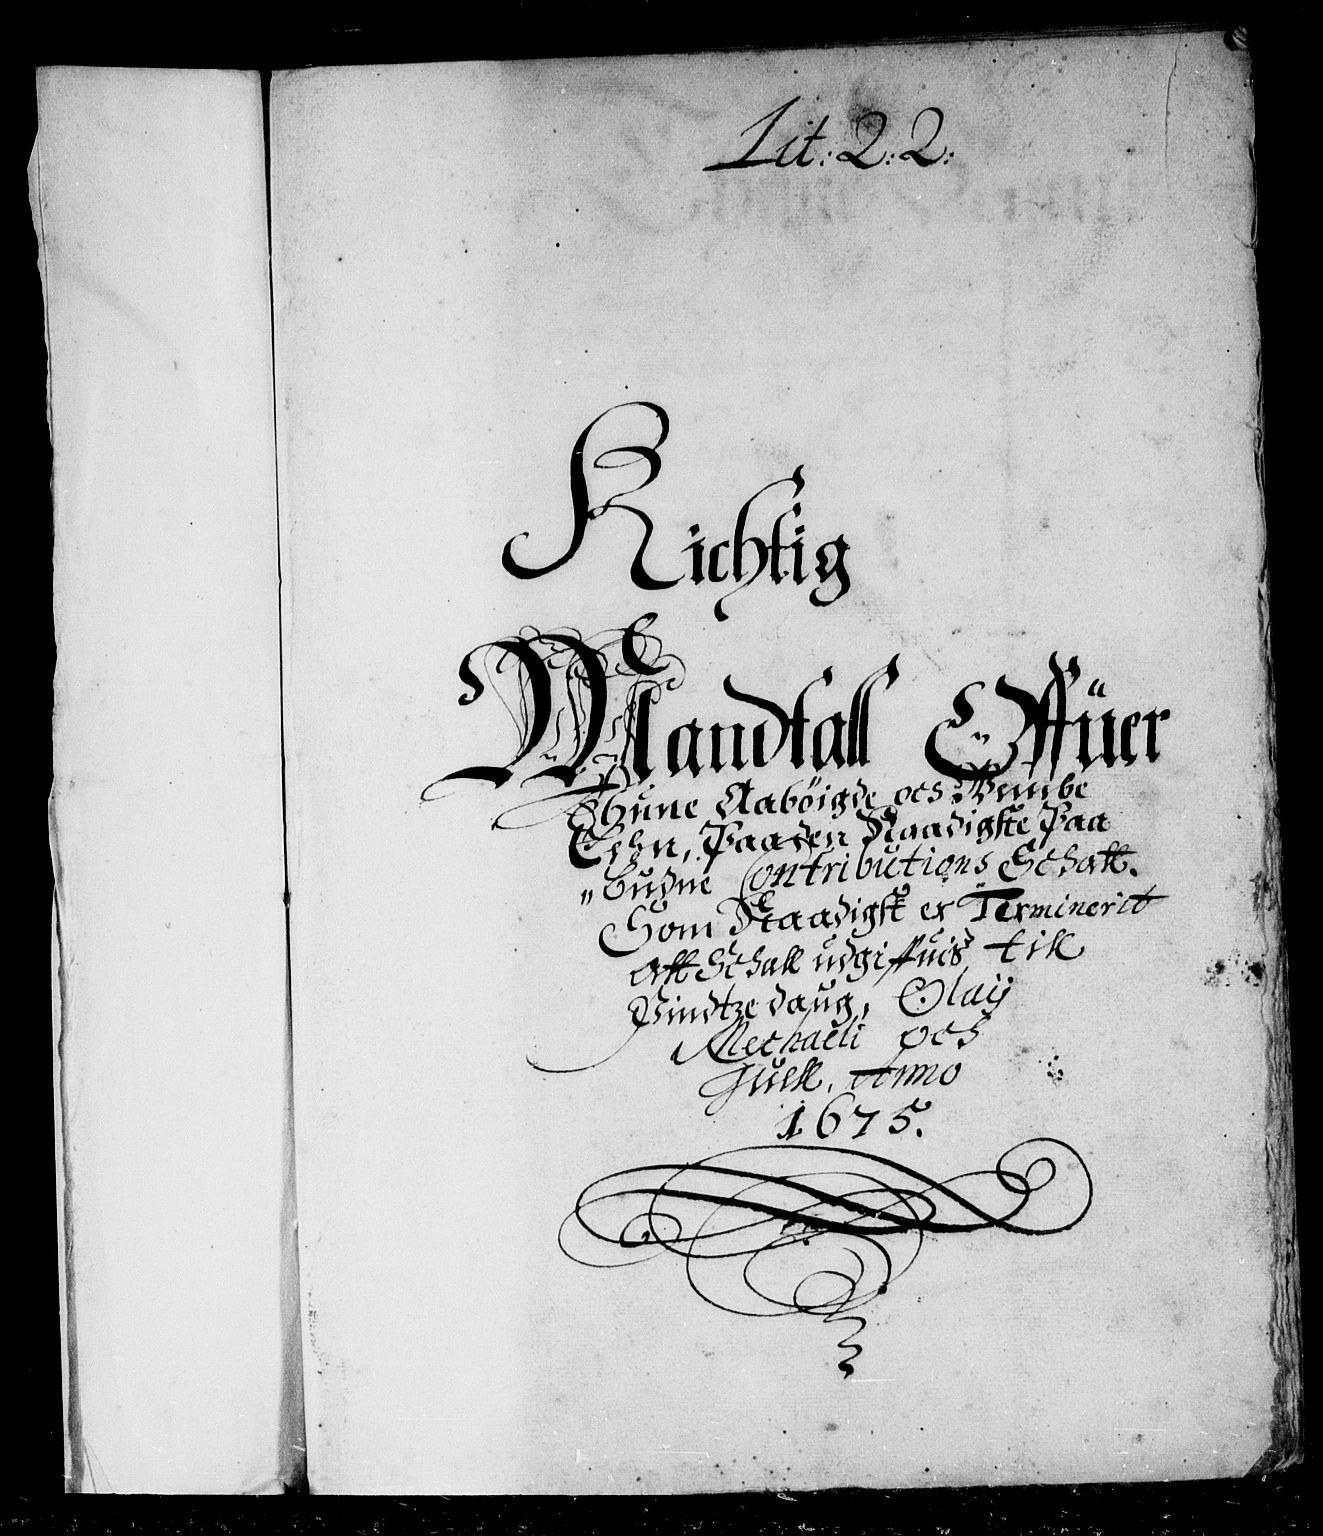 Lit: 2: 2:
Richtig
Mandtall Offüer
Hune Aabøigde och Wembe
Lehn, Paa den Naadigste Paa
„budne Contributions Schatt.
Som Naadigst er Terminerit
att Schall udgiffuis till
Pindtzedaug, Olaij
Mechaeli och
Juell, Anno
1675.